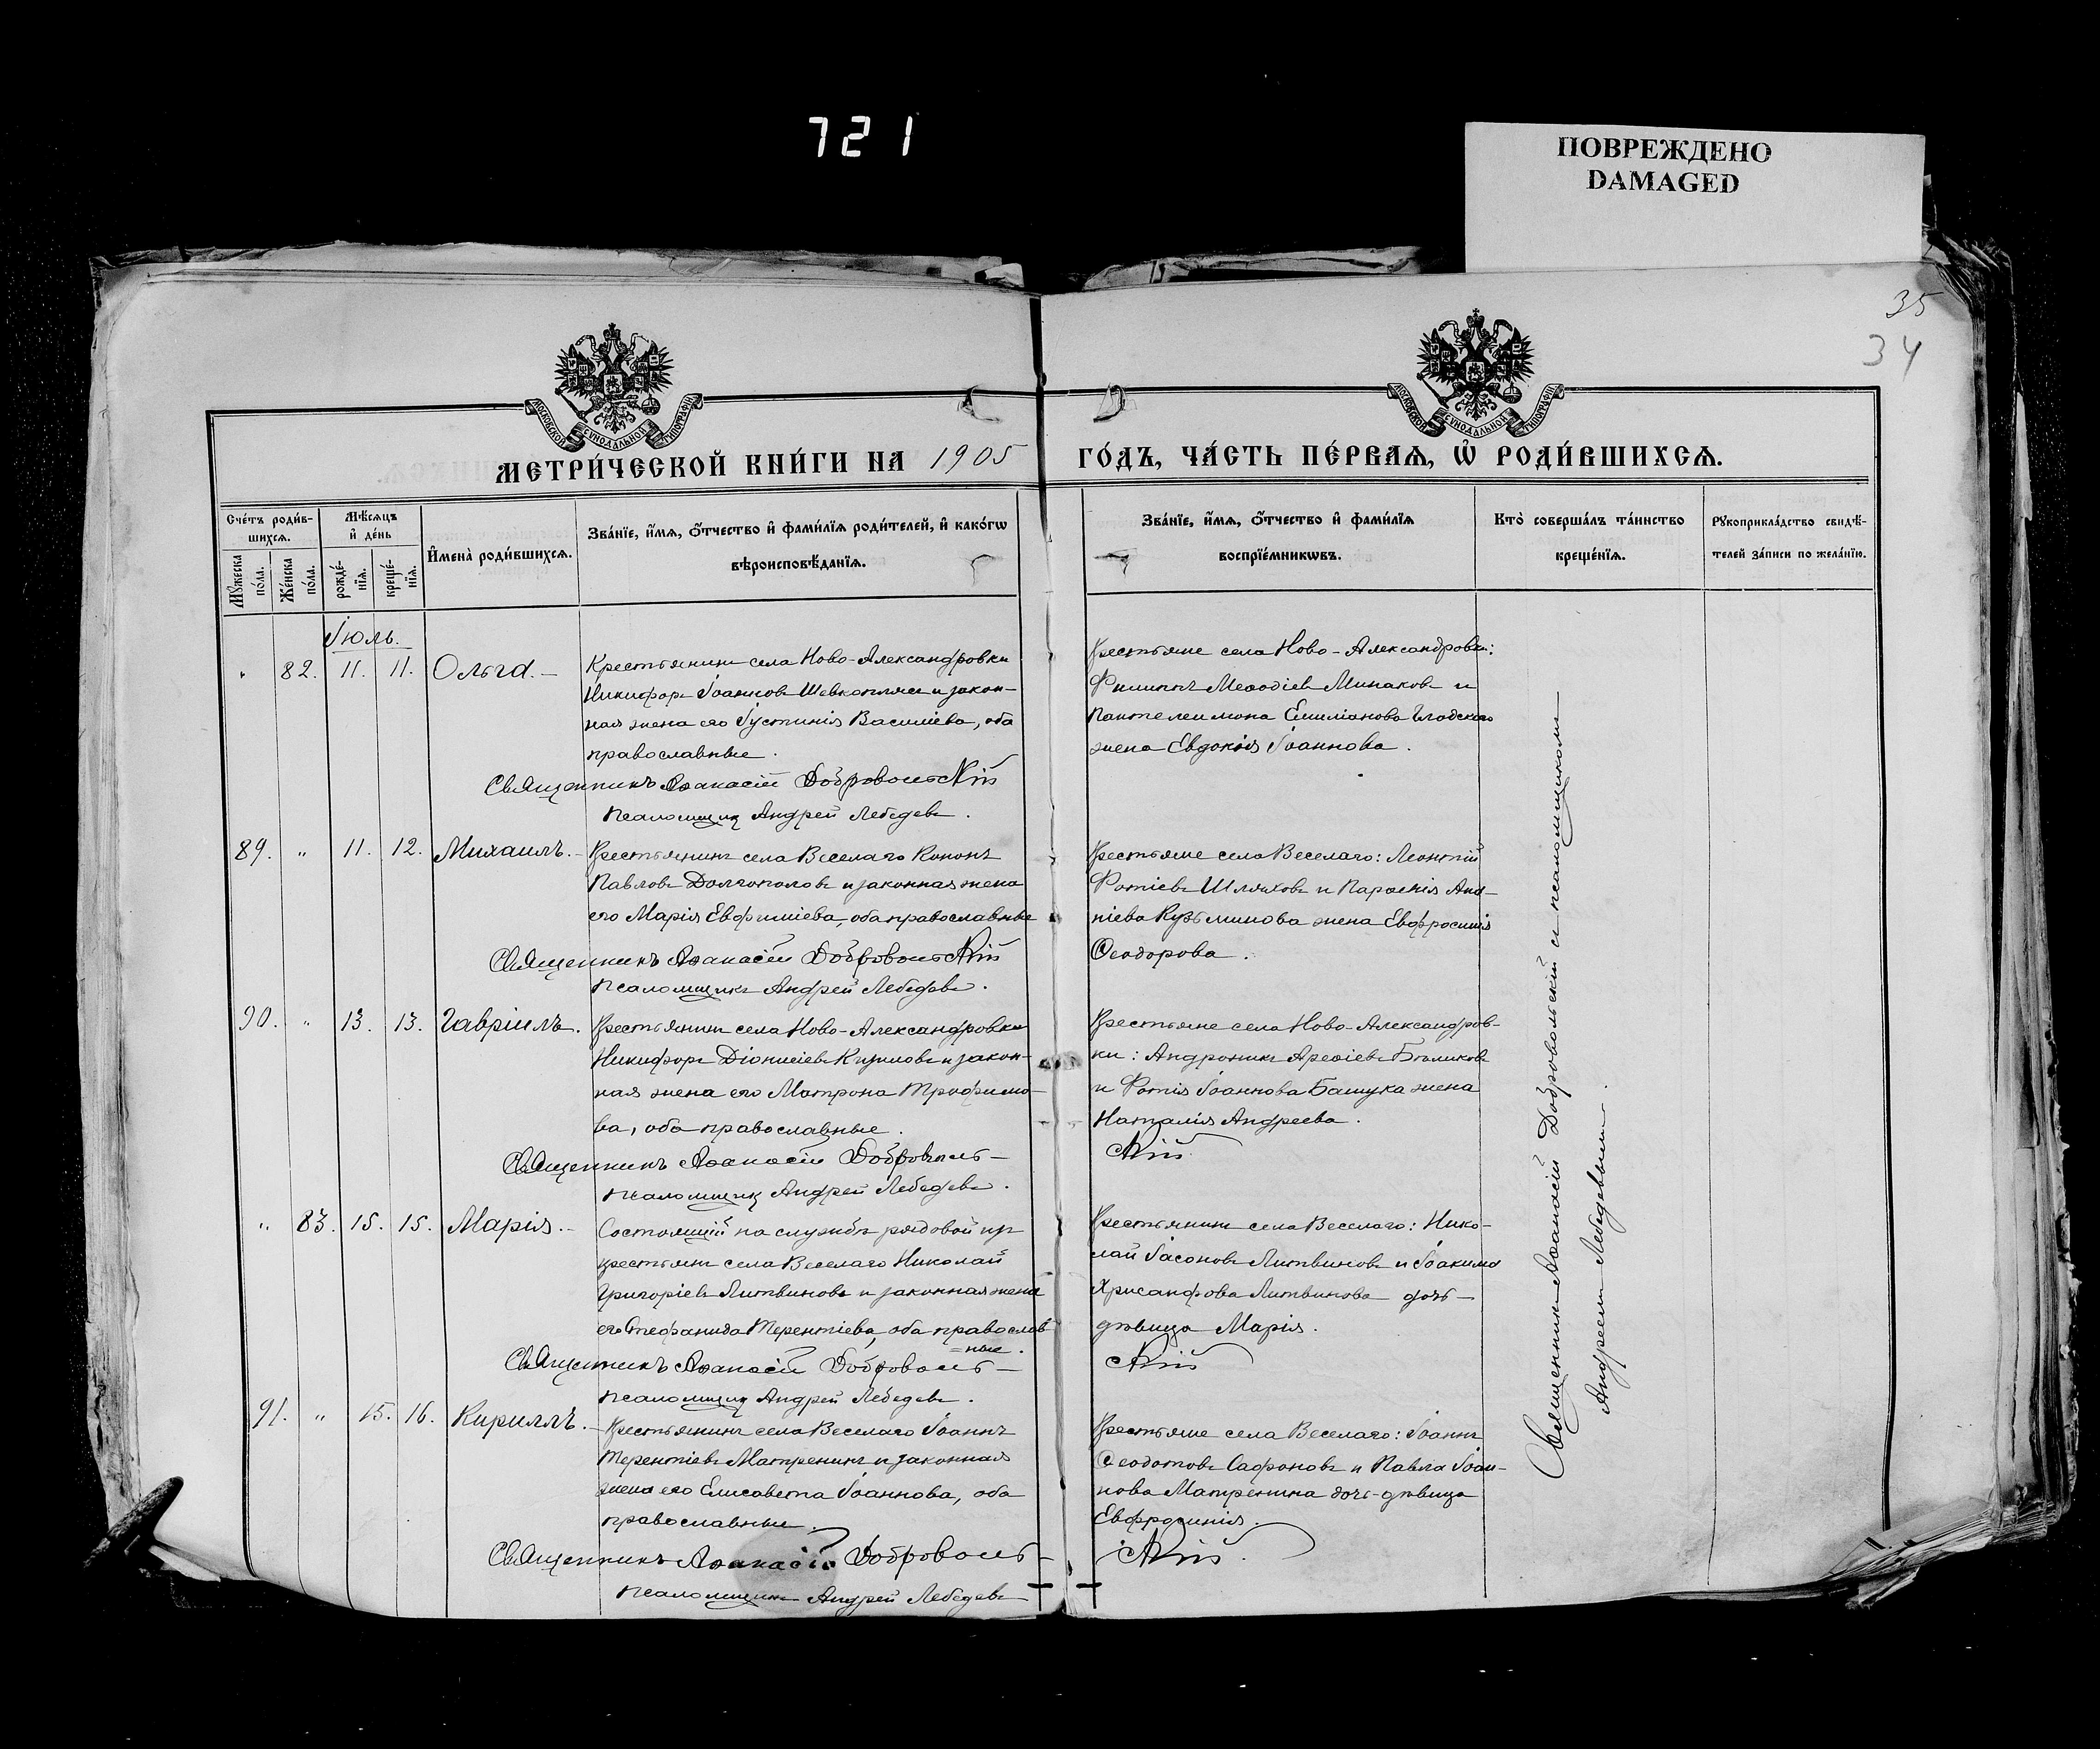 721
ПОВРЕЖДЕНО
DAMAGED
35
34
МОСКОВСКОЙ СУНОДАЛЬНОЙ ТИПОГРАФІИ
МОСКОВСКОЙ СУНОДАЛЬНОЙ ТИПОГРАФІИ
МЕТРИ́ЧЕСКОЙ КНИ́ГИ НА 1905 ГО́ДЪ, ЧА́СТЬ ПЕ́РВАѦ, Ѡ҆ РОДИ́ВШИХСѦ.
Сче́тъ роди́в-
шихсѧ.
Мѣ́сѧцъ
и҆ де́нь
Мꙋ́жеска
по́ла.
Же́нска
по́ла.
рожде́-
нїѧ.
креще́-
нїѧ.
И҆мена̀ роди́вшихсѧ.
Зва́нїе, и҆́мѧ, ѻ҆́тчество и҆ фами́лїѧ роди́телей, и҆ како́гѡ
вѣроисповѣ́данїѧ.
Зва́нїе, и҆́мѧ, ѻ҆́тчество и҆ фами́лїѧ
воспрїе́мникѡвъ.
Кто̀ соверша́лъ та́инство
креще́нїѧ.
Рꙋкоприкла́дство свидѣ́-
телей за́писи по жела́нїю.
Іюль.
" 82. 11. 11. Ольга. –
Крестьянинъ села Ново-Александровки
Никифоръ Іоанновъ Шевкоплясъ и закон-
ная жена его Іустинія Василіева, оба
православные.
Священникъ Аѳанасій Добровольскій
Псаломщикъ Андрей Лебедевъ.
Крестьяне села Ново-Александровки:
Филиппъ Меѳодіевъ Минаковъ и
Пантелеимона Емиліанова
жена Евдокія Іоаннова.
89. " 11. 12. Михаилъ. –
Крестьянинъ села Веселаго Кононъ
Павловъ Долгополовъ и законная жена
его Марія Евфиміева, оба православные
Священникъ Аѳанасій Добровольскій
Псаломщикъ Андрей Лебедевъ.
Крестьяне села Веселаго: Леонтій
Фотіевъ Шляховъ и
Кузьминова жена Евфросинія
Ѳеодорова.
90. " 13. 13. Гавріилъ.
Крестьянинъ села Ново-Александровки
Никифоръ Діонисіевъ и закон-
ная жена его Матрона Трофимо-
ва, оба православные.
Священникъ Аѳанасій Доброволь-
Псаломщикъ Андрей Лебедевъ.
Крестьяне села Ново-Александров-
ки: Андроникъ Ареѳіевъ Бѣликовъ
и Фотія Іоаннова Башука жена
Наталія Андреева.
скій
" 83. 15. 15. Марія. –
Состоящій на службѣ рядовой изъ
крестьянъ села Веселаго Николай
Григоріевъ Литвиновъ и законная жена
его Стефанида Терентіева, оба православ
=ные.
Священникъ Аѳанасій Доброволь-
Псаломщикъ Андрей Лебедевъ.
Крестьянинъ села Веселаго: Нико-
лай Іасоновъ Литвиновъ и Іоакима
Хрисанфова Литвинова дочь –
дѣвица Марія.
скій
91. " 15. 16. Кириллъ. –
Крестьянинъ села Веселаго Іоаннъ
Терентіевъ Матренинъ и законная
жена его Елисавета Іоаннова, оба
православные.
Священникъ Аѳанасій Доброволь-
Псаломщикъ Андрей Лебедевъ
Крестьяне села Веселаго: Іоаннъ
Ѳеодотовъ Сафоновъ и Павла Іоан-
нова Матренина дочь-дѣвица
Евфросинія.
скій.
Священникъ Аѳанасій Добровольскій съ псаломщикомъ
Андреемъ Лебедевымъ.